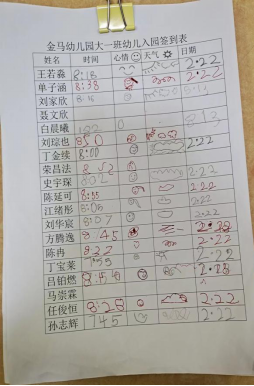 金马幼儿园大一班幼儿入园签到表
姓名 时间 心情 天气 日期
王若淼 8:18 2.22
单子涵 8:38 2.22
刘家欣 8:16
聂文欣
白晨曦
刘琮也 8:50 2.13
丁金续 8:00 2.22
荣昌法 8:52
史宇琛 802 2.22
陈延可 8:55 2.22
江绪彤 8:06 2.22
刘华宸 8:07 2.22
方腾逸 845
陈冉 837 2.22
丁宝莱 2.22
吕铂燃 8:56 2.28
马崇霖
任俊恒 8:28 2.22
孙志辉 745 2.22